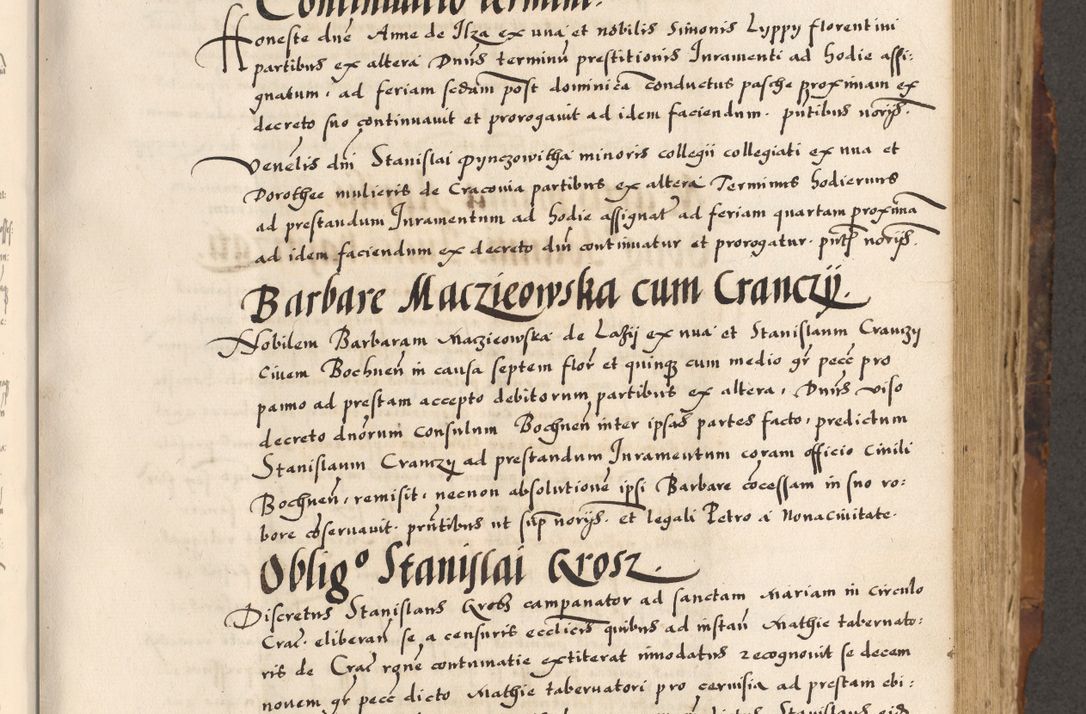 Continuatio termini.
Honeste dne Anne de Ilza ex una et nobilis Simonis Lyppy florentini
partibus ex altera Dnus terminu prestitionis Iuramenti ad hodie assi:
gnatum, ad feriam scdam post dominica conductus pasche proximam ex
decreto suo continuauit et prorogauit ad idem faciendum. pntibus norijs.
Venelis dni Stanislai pynczowitha minoris collegii collegiati ex una et
Dorothee mulieris de Cracouia partibus ex altera Terminus hodiernus
ad prestandum Iuramentum ad hodie assignat ad feriam quartam proxima
ad idem faciendum ex decreto dni continuatur et prorogatur. pntib norijs.
Barbare Maczieowska cum Cranczy.
Nobilem Barbaram Maczieowska de Lazij ex una et Stanislaum Cranczy
Ciuem Bochnen in causa septem flor et quinqz cum medio gr pecc pro
panno ad prestam accepto debitorum partibus ex altera, Dnus viso
decreto dnorum Consulum Bochnen inter ipsas partes facto, predictum
Stanislaum Cranczy ad prestandum Iuramentum coram officio Ciuili
Bochnen, remisit, necnon absolutione ipsi Barbare cocessam in suo ro-
bore coseruauit. pntibus ut sup norijs. et legali Petro a Nonaciuitate.
Obligo Stanislai Grosz.
Discretus Stanislaus Grosz campanator ad sanctam Mariam in circulo
Crac. eliberan se a censuris ecclicis quibus ad instan Mathie tabernato:
ris de Crac rone contumatie extiterat innodatus recognouit se decem
nouem gr pecc dicto Mathie tabernatori pro ceruisia ad prestam ebi:
Stanislaus eid